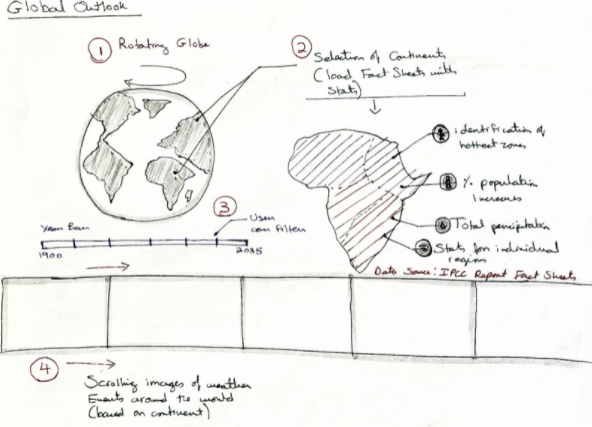 Global Outlook
1 Rotating Globe
2 Selection of Continents
(load Fact Sheets with
Stats)
identification of
hottest zones
% population
Increases
Total percipitation
Stats for individual
regions
Data Source: IPCC Report Fact Sheets
3 User
can filter
Year Bar
1900
2035
4
Scrolling images of weather
Events around the world
(based on continent)